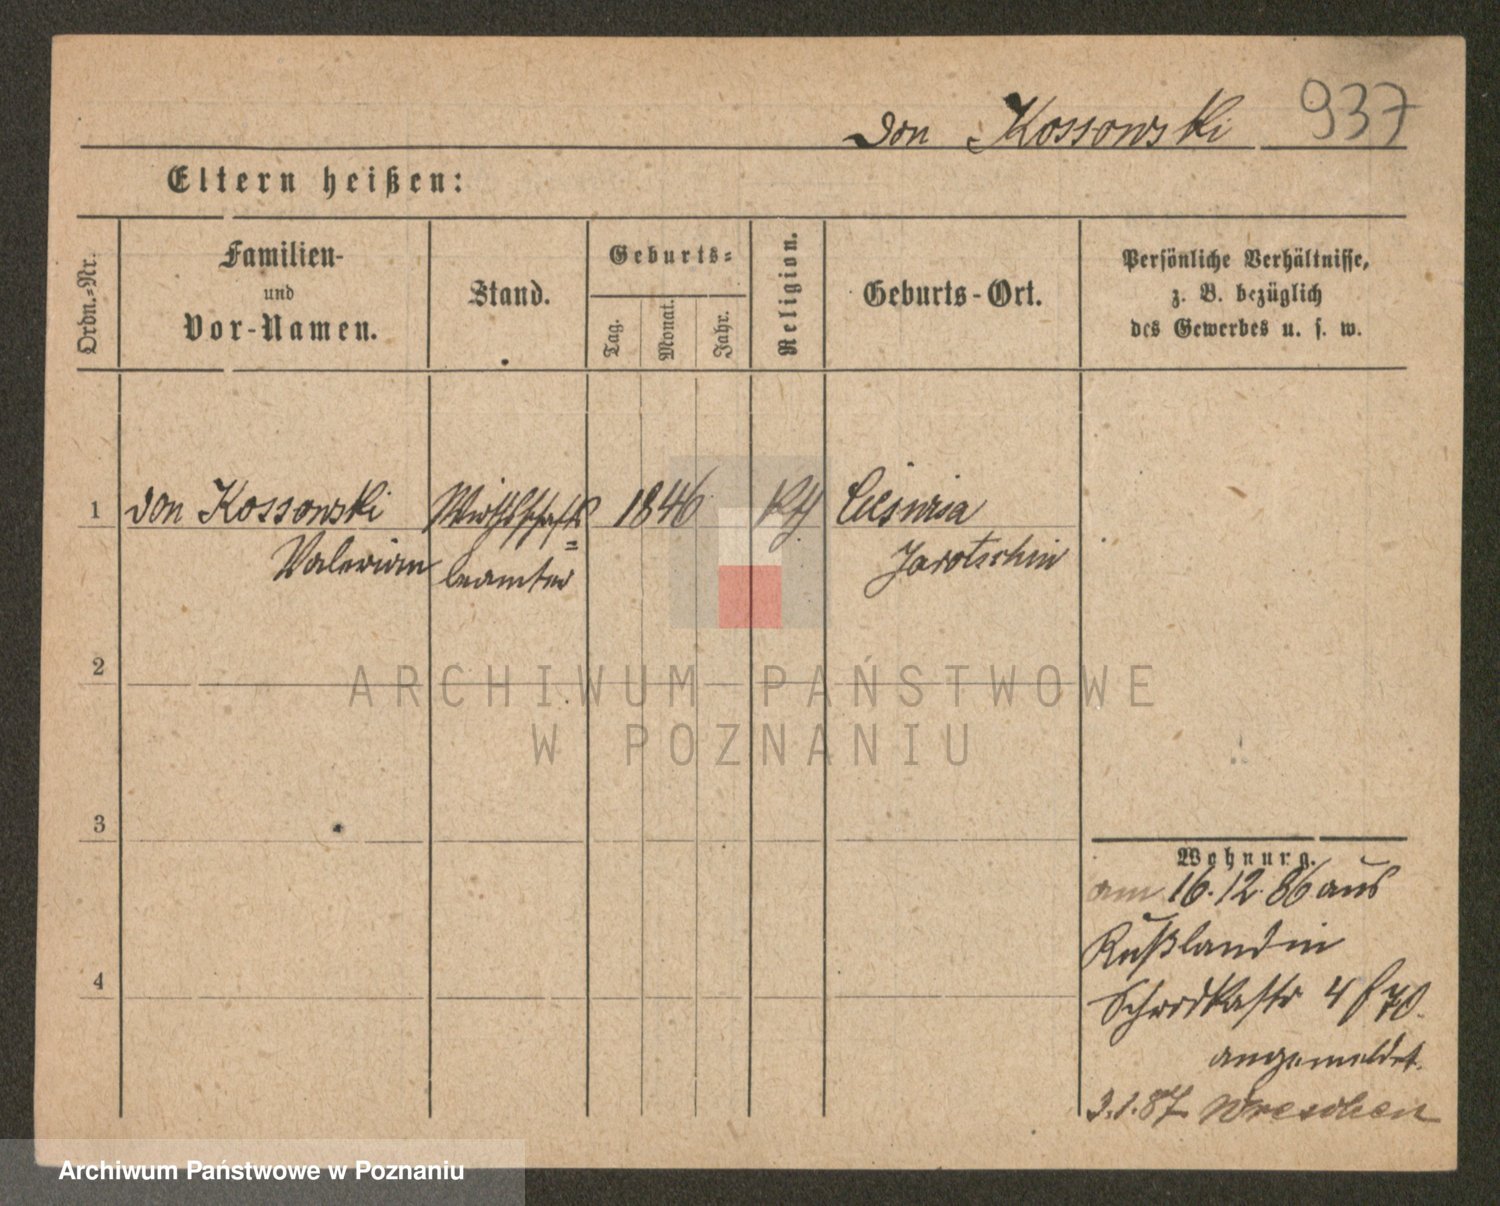 von Kossowski 937
Eltern heißen:
Ordn.-Nr.
Familien-
und
Vor-Namen.
Stand.
Geburts-
Tag.
Monat.
Jahr.
Religion.
Geburts-Ort.
Persönliche Verhältnisse,
z. B. bezüglich
des Gewerbes u. s. w.
1 von Kossowski Wirthschafts 1846 kth
Valerian =beamter Jarotschin
2
3
4
Wohnung.
am 16.12.86 aus
Rußland in
Schrodkastr 4
angemeldet.
3.1.87 Wreschen
ARCHIWUM PAŃSTWOWE
W POZNANIU
Archiwum Państwowe w Poznaniu